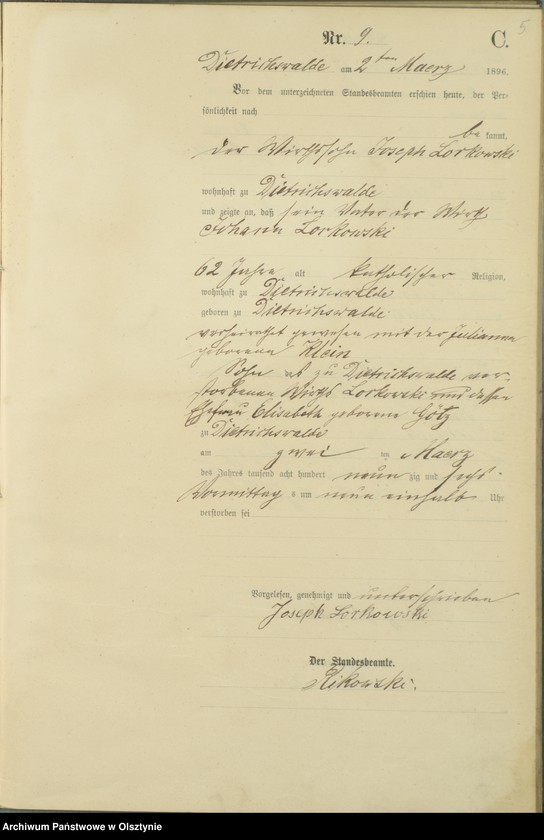 5
Nr. 9. C.
Dietrichswalde am 2ten Maerz 1896.
Vor dem unterzeichneten Standesbeamten erschien heute, der Per-
sönlichkeit nach
be kannt,
der Wirthssohn Joseph Lorkowski
wohnhaft zu Dietrichswalde
und zeigte an, daß sein Vater der Wirth
Johann Lorkowski
62 Jahre alt katholischer Religion,
wohnhaft zu Dietrichswalde
geboren zu Dietrichswalde
verheirathet gewesen mit der Julianna
geborenen Klein
Sohn des zu Dietrichswalde ver-
storbenen Wirths Lorkowski und dessen
Ehefrau Elisabeth geborene Götz
zu Dietrichswalde
am zwei ten Maerz
des Jahres tausend acht hundert neun zig und sechs
Vormittag s um neun einhalb Uhr
verstorben sei
Vorgelesen, genehmigt und unterschrieben
Joseph Lorkowski
Der Standesbeamte.
Rikowski.
Archiwum Państwowe w Olsztynie